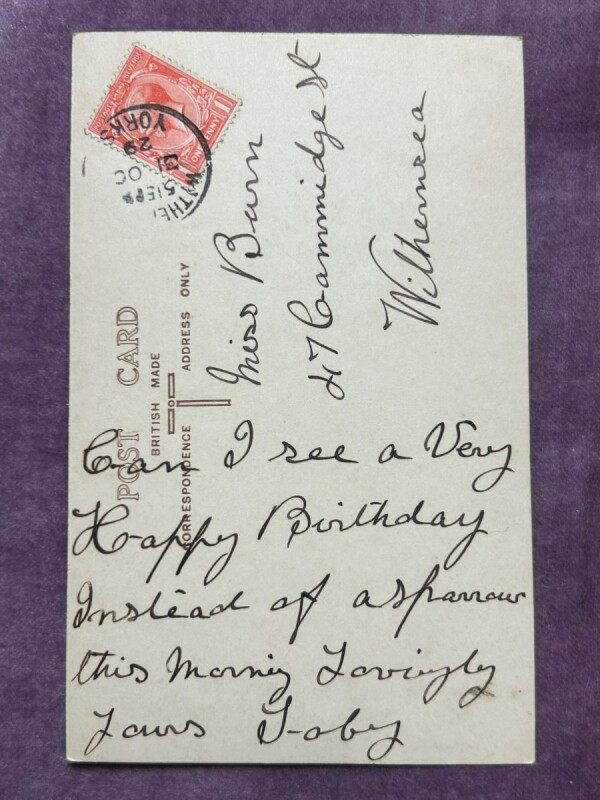 POST CARD
BRITISH MADE
CORRESPONDENCE
ADDRESS ONLY
WITHE
5 15 PM
31 OC
29
YORKS
Miss Burn
47 Cammidge St
Withernsea
Can I see a Very
Happy Birthday
Instead of a sparrow
this Morning Lovingly
Yours Toby